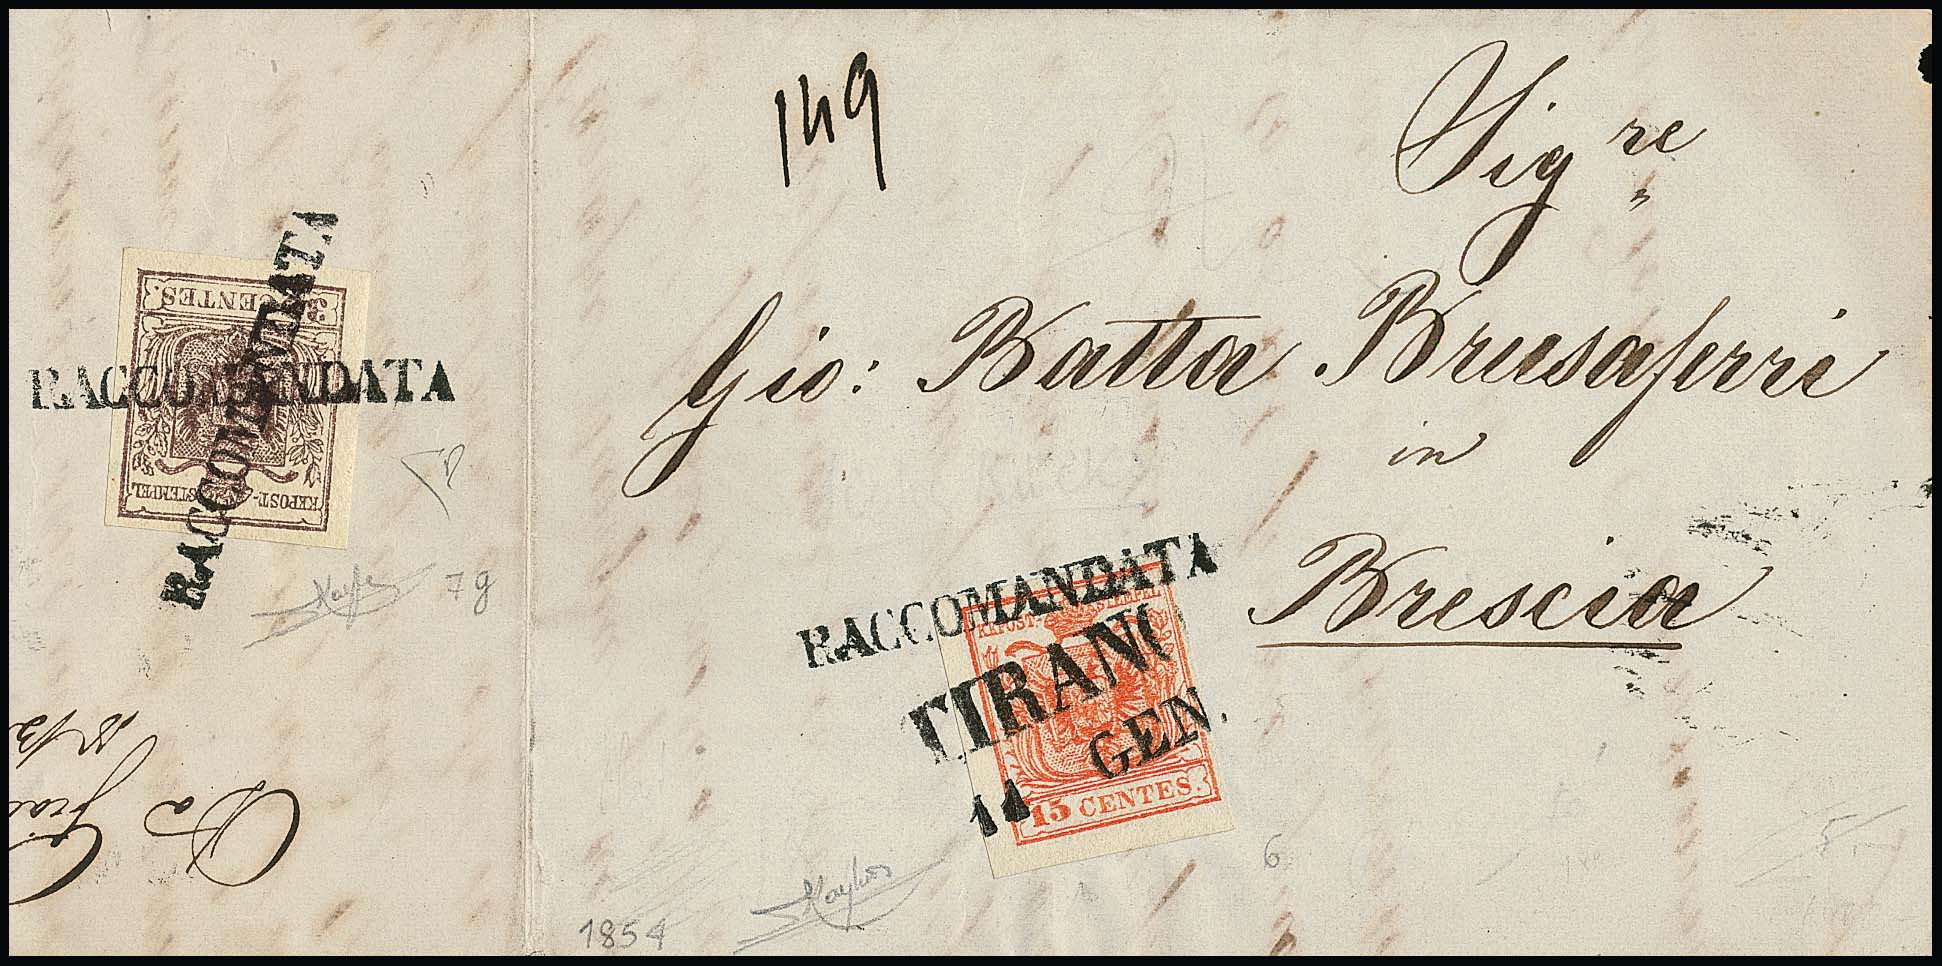 149
Sig.re
Gio: Batta Brusaferri
in
Brescia
RACCOMANDATA
RACCOMANDATA
CENTES.
KKPOST-
STEMPEL
7 g
RACCOMANDATA
TIRANO
11 GEN.
KKPOST-
15 CENTES.
6
1854
Da